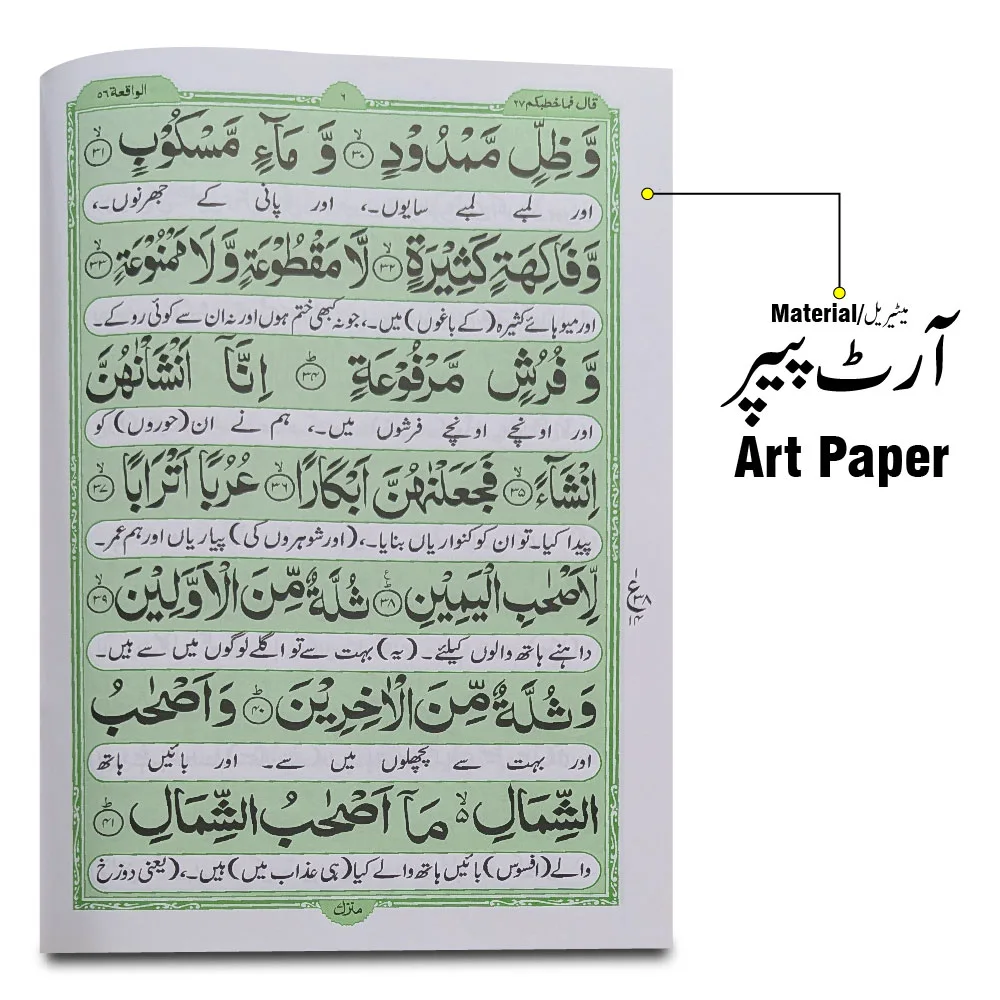 قال فما خطبكم ٢٧
٦
الواقعة ٥٦
وَّ ظِلٍّ مَّمْدُوْدٍ ۙ﴿۳۰﴾ وَّ مَآءٍ مَّسْكُوْبٍ ۙ﴿۳۱﴾
اور لمبے لمبے سایوں۔، اور پانی کے جھرنوں۔،
وَّفَاكِهَةٍ كَثِيْرَةٍ ۙ﴿۳۲﴾ لَّا مَقْطُوْعَةٍ وَّلَا مَمْنُوْعَةٍ ۙ﴿۳۳﴾
اور میوہائے کثیرہ (کے باغوں) میں۔، جو نہ کبھی ختم ہوں اور نہ ان سے کوئی روکے۔
وَّ فُرُشٍ مَّرْفُوْعَةٍ ؕ﴿۳۴﴾ اِنَّاۤ اَنْشَاْنٰهُنَّ
اور اونچے اونچے فرشوں میں۔، ہم نے ان (حوروں) کو
اِنْشَآءً ۙ﴿۳۵﴾ فَجَعَلْنٰهُنَّ اَبْكَارًا ۙ﴿۳۶﴾ عُرُبًا اَتْرَابًا ۙ﴿۳۷﴾
پیدا کیا۔ تو ان کو کنواریاں بنایا۔، (اور شوہروں کی) پیاریاں اور ہم عمر۔
لِّاَصْحٰبِ الْيَمِيْنِ ؕ﴿۳۸﴾ ثُلَّةٌ مِّنَ الْاَوَّلِيْنَ ۙ﴿۳۹﴾
ع ۳۸ ۱۴
داہنے ہاتھ والوں کیلئے۔ (یہ) بہت سے تو اگلے لوگوں میں سے ہیں۔
وَ ثُلَّةٌ مِّنَ الْاٰخِرِيْنَ ؕ﴿۴۰﴾ وَ اَصْحٰبُ
اور بہت سے پچھلوں میں سے۔ اور بائیں ہاتھ
الشِّمَالِ ۙ۵ مَاۤ اَصْحٰبُ الشِّمَالِ ؕ﴿۴۱﴾
والے (افسوس) بائیں ہاتھ والے کیا (ہی عذاب میں) ہیں۔، (یعنی دوزخ
Material/میٹیریل
آرٹ پیپر
Art Paper